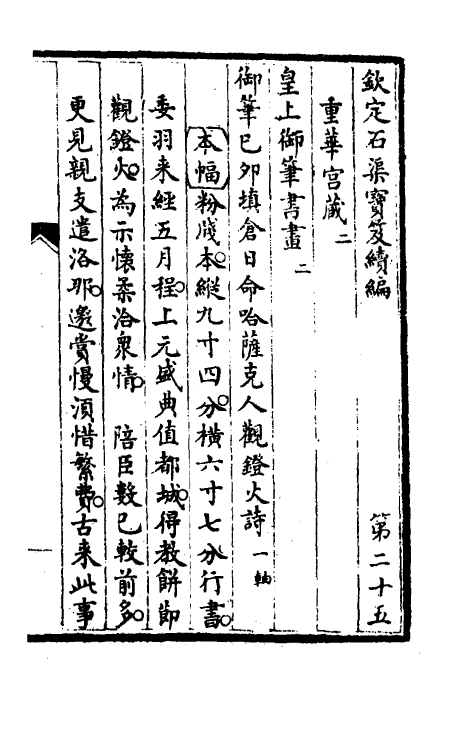 欽定石渠寶笈續編　第二十五
重華宮藏二
皇上御筆書畫二
御筆己夘填倉日命哈薩克人觀鐙火詩一軸
本幅粉牋本。縱九寸四分。橫六寸七分行書。
委羽来經五月程。上元盛典值都城。得教餅節
觀鐙火。為示懷柔洽衆情。陪臣數已較前多。
更見親支遣洛那。邀賞慢湏惜繁費。古来此事